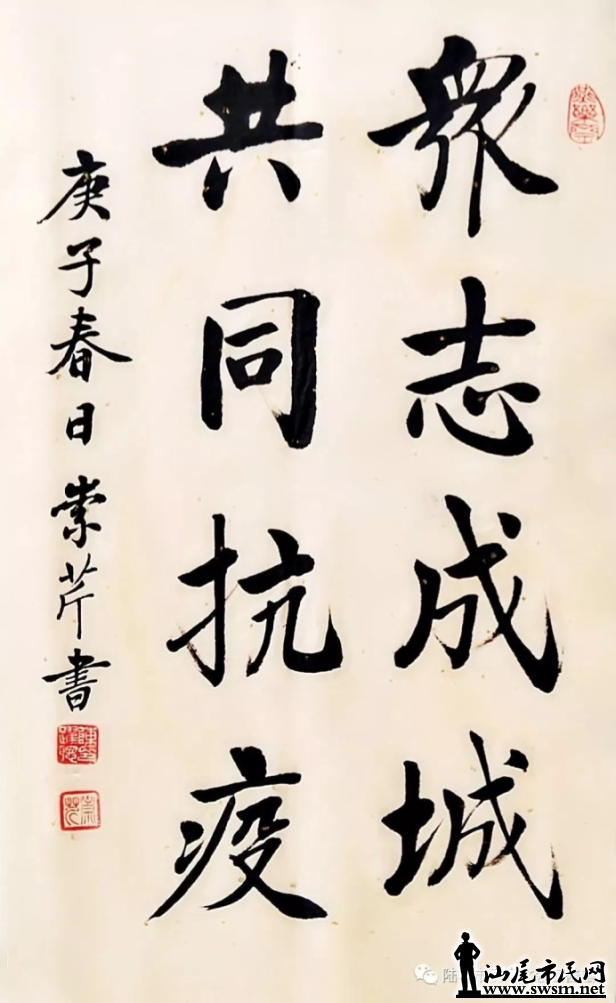 眾志成城
共同抗疫
庚子春日崇芹書
陆
汕尾市民网
www.swsm.net